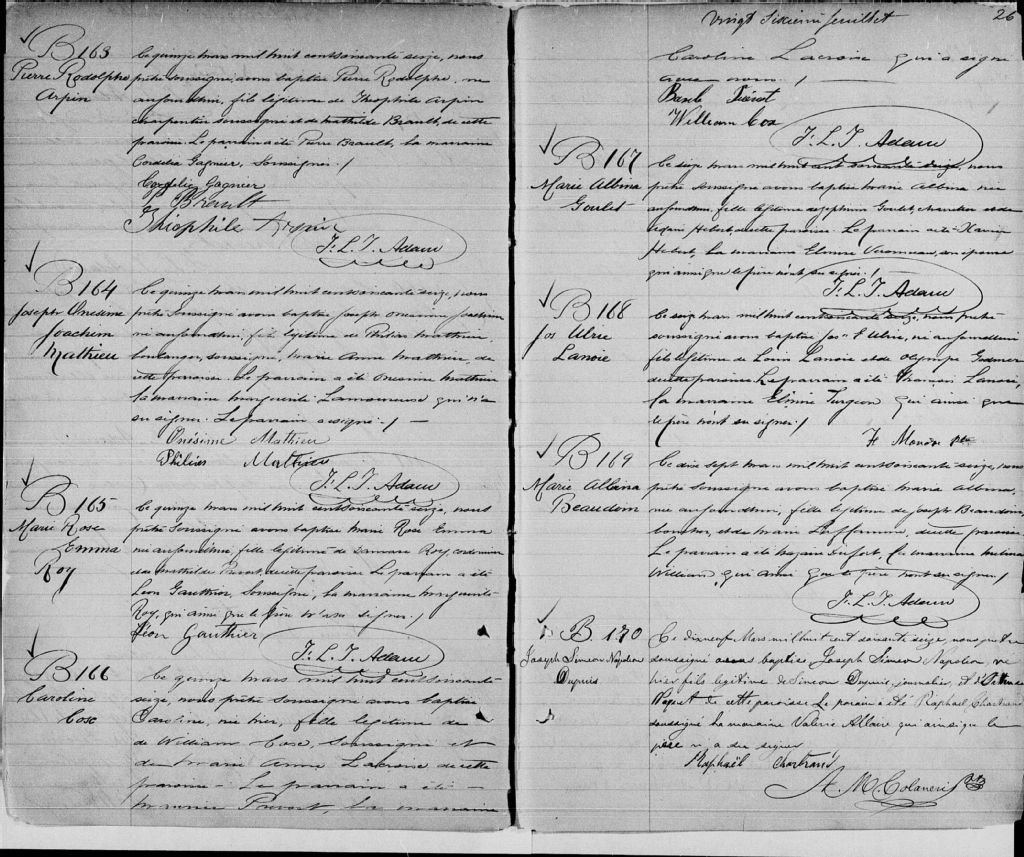 B 163
Pierre Rodolphe
Arpin
Ce quinze mars mil huit cent soixante seize, nous
prêtre soussigné avons baptisé Pierre Rodolphe, né
aujourd'hui, fils légitime de Théophile Arpin
charpentier soussigné et de Mathilde Brault, de cette
paroisse. Le parrain a été Pierre Brault, la marraine
Cordelie Gagnier, soussignés./
Cordelie Gagnier
P. Brault
Théophile Arpin
F. L. T. Adam
B 164
Joseph Onésime
Joachim
Mathieu
Ce quinze mars mil huit cent soixante seize, nous
prêtre soussigné avons baptisé Joseph Onésime Joachim
né aujourd'hui, fils légitime de Philias Mathieu,
boulanger, soussigné, Marie Anne Mathieu, de
cette paroisse. Le parrain a été Onésime Mathieu
la marraine Marguerite Lamoureuse qui n'a
su signer. Le parrain a signé./ —
Onésime Mathieu
Philias Mathieu
F. L. T. Adam
B 165
Marie Rose
Emma
Roy
Ce quinze mars mil huit cent soixante seize, nous
prêtre soussigné avons baptisé Marie Rose Emma
née aujourd'hui, fille légitime de Damase Roy cordonnier
et de Mathilde Prevost, de cette paroisse. Le parrain a été
Léon Gauthier, soussigné, la marraine Marguerite
Roy, qui ainsi que le père n'a su signer./
Léon Gauthier
F. L. T. Adam
B 166
Caroline
Cox
Ce quinze mars mil huit cent soixante
seize, nous prêtre soussigné avons baptisé
Caroline, née hier, fille légitime de
de William Cox, soussigné et
de Marie Anne Lacroix de cette
paroisse — Le parrain a été —
Prevost, la marraine
Vingt Sixième feuillet
26
Caroline Lacroix qui a signé
avec nous./
William Cox
F. L. T. Adam
B 167
Marie Albina
Goulet
Ce seize mars mil huit cent soixante seize, nous
prêtre soussigné avons baptisé Marie Albina née
aujourd'hui, fille légitime de Goulet, et de
Hebert, de cette paroisse. Le parrain a été
Hebert, la marraine
qui ainsi que le père n'ont su signer./
F. L. T. Adam
B 168
Jos Ulric
Lanoie
Ce seize mars mil huit cent soixante seize, nous prêtre
soussigné avons baptisé Jos Ulric, né aujourd'hui
fils légitime de Louis Lanoie et de Olympe
de cette paroisse. Le parrain a été Thomas Lanoie,
la marraine Elmire Turgeon qui ainsi que
le père n'ont su signer./
F. Mondor ptre
B 169
Marie Albana
Beaudoin
Ce dix sept mars mil huit cent soixante seize, nous
prêtre soussigné avons baptisé Marie Albana,
née aujourd'hui, fille légitime de Joseph Beaudoin,
boucher, et de Marie, de cette paroisse
Le parrain a été, la marraine
William, qui ainsi que le père n'ont su signer./
F. L. T. Adam
B 170
Joseph Siméon Napoléon
Dupuis
Ce dix neuf Mars mil huit cent soixante seize, nous prêtre
soussigné avons baptisé Joseph Siméon Napoléon, né
hier fils légitime de Siméon Dupuis, journalier, et de
Paquet de cette paroisse Le parain a été Raphaël Chartrand
soussigné La marraine Valérie Allaire qui ainsi que le
père n'a su signer
Raphaël Chartrand